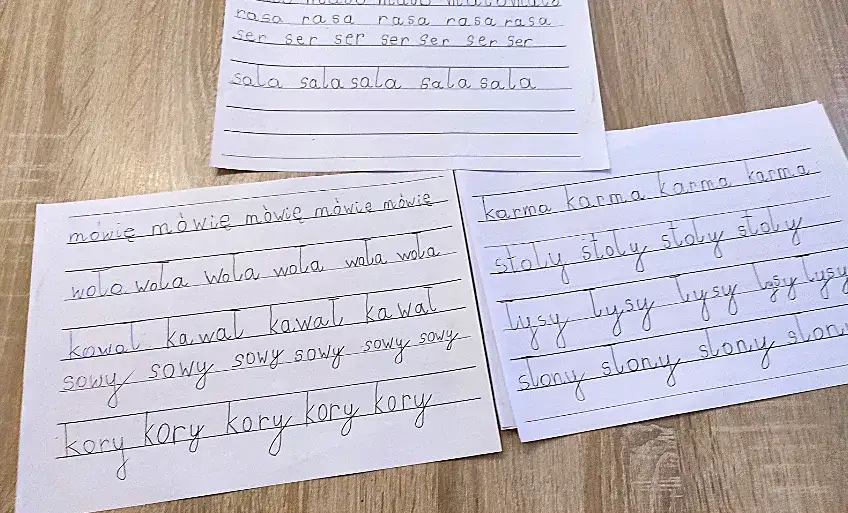 rasa rasa rasa rasa rasa
ser ser ser ser ser ser ser
sala sala sala sala sala
mówię mówię mówię mówię mówię
woła woła woła woła woła woła
kawał kawał kawał kawał
sowy sowy sowy sowy sowy sowy
kory kory kory kory kory
karma karma karma karma
stoły stoły stoły stoły
łysy łysy łysy łysy łysy
słony słony słony słony